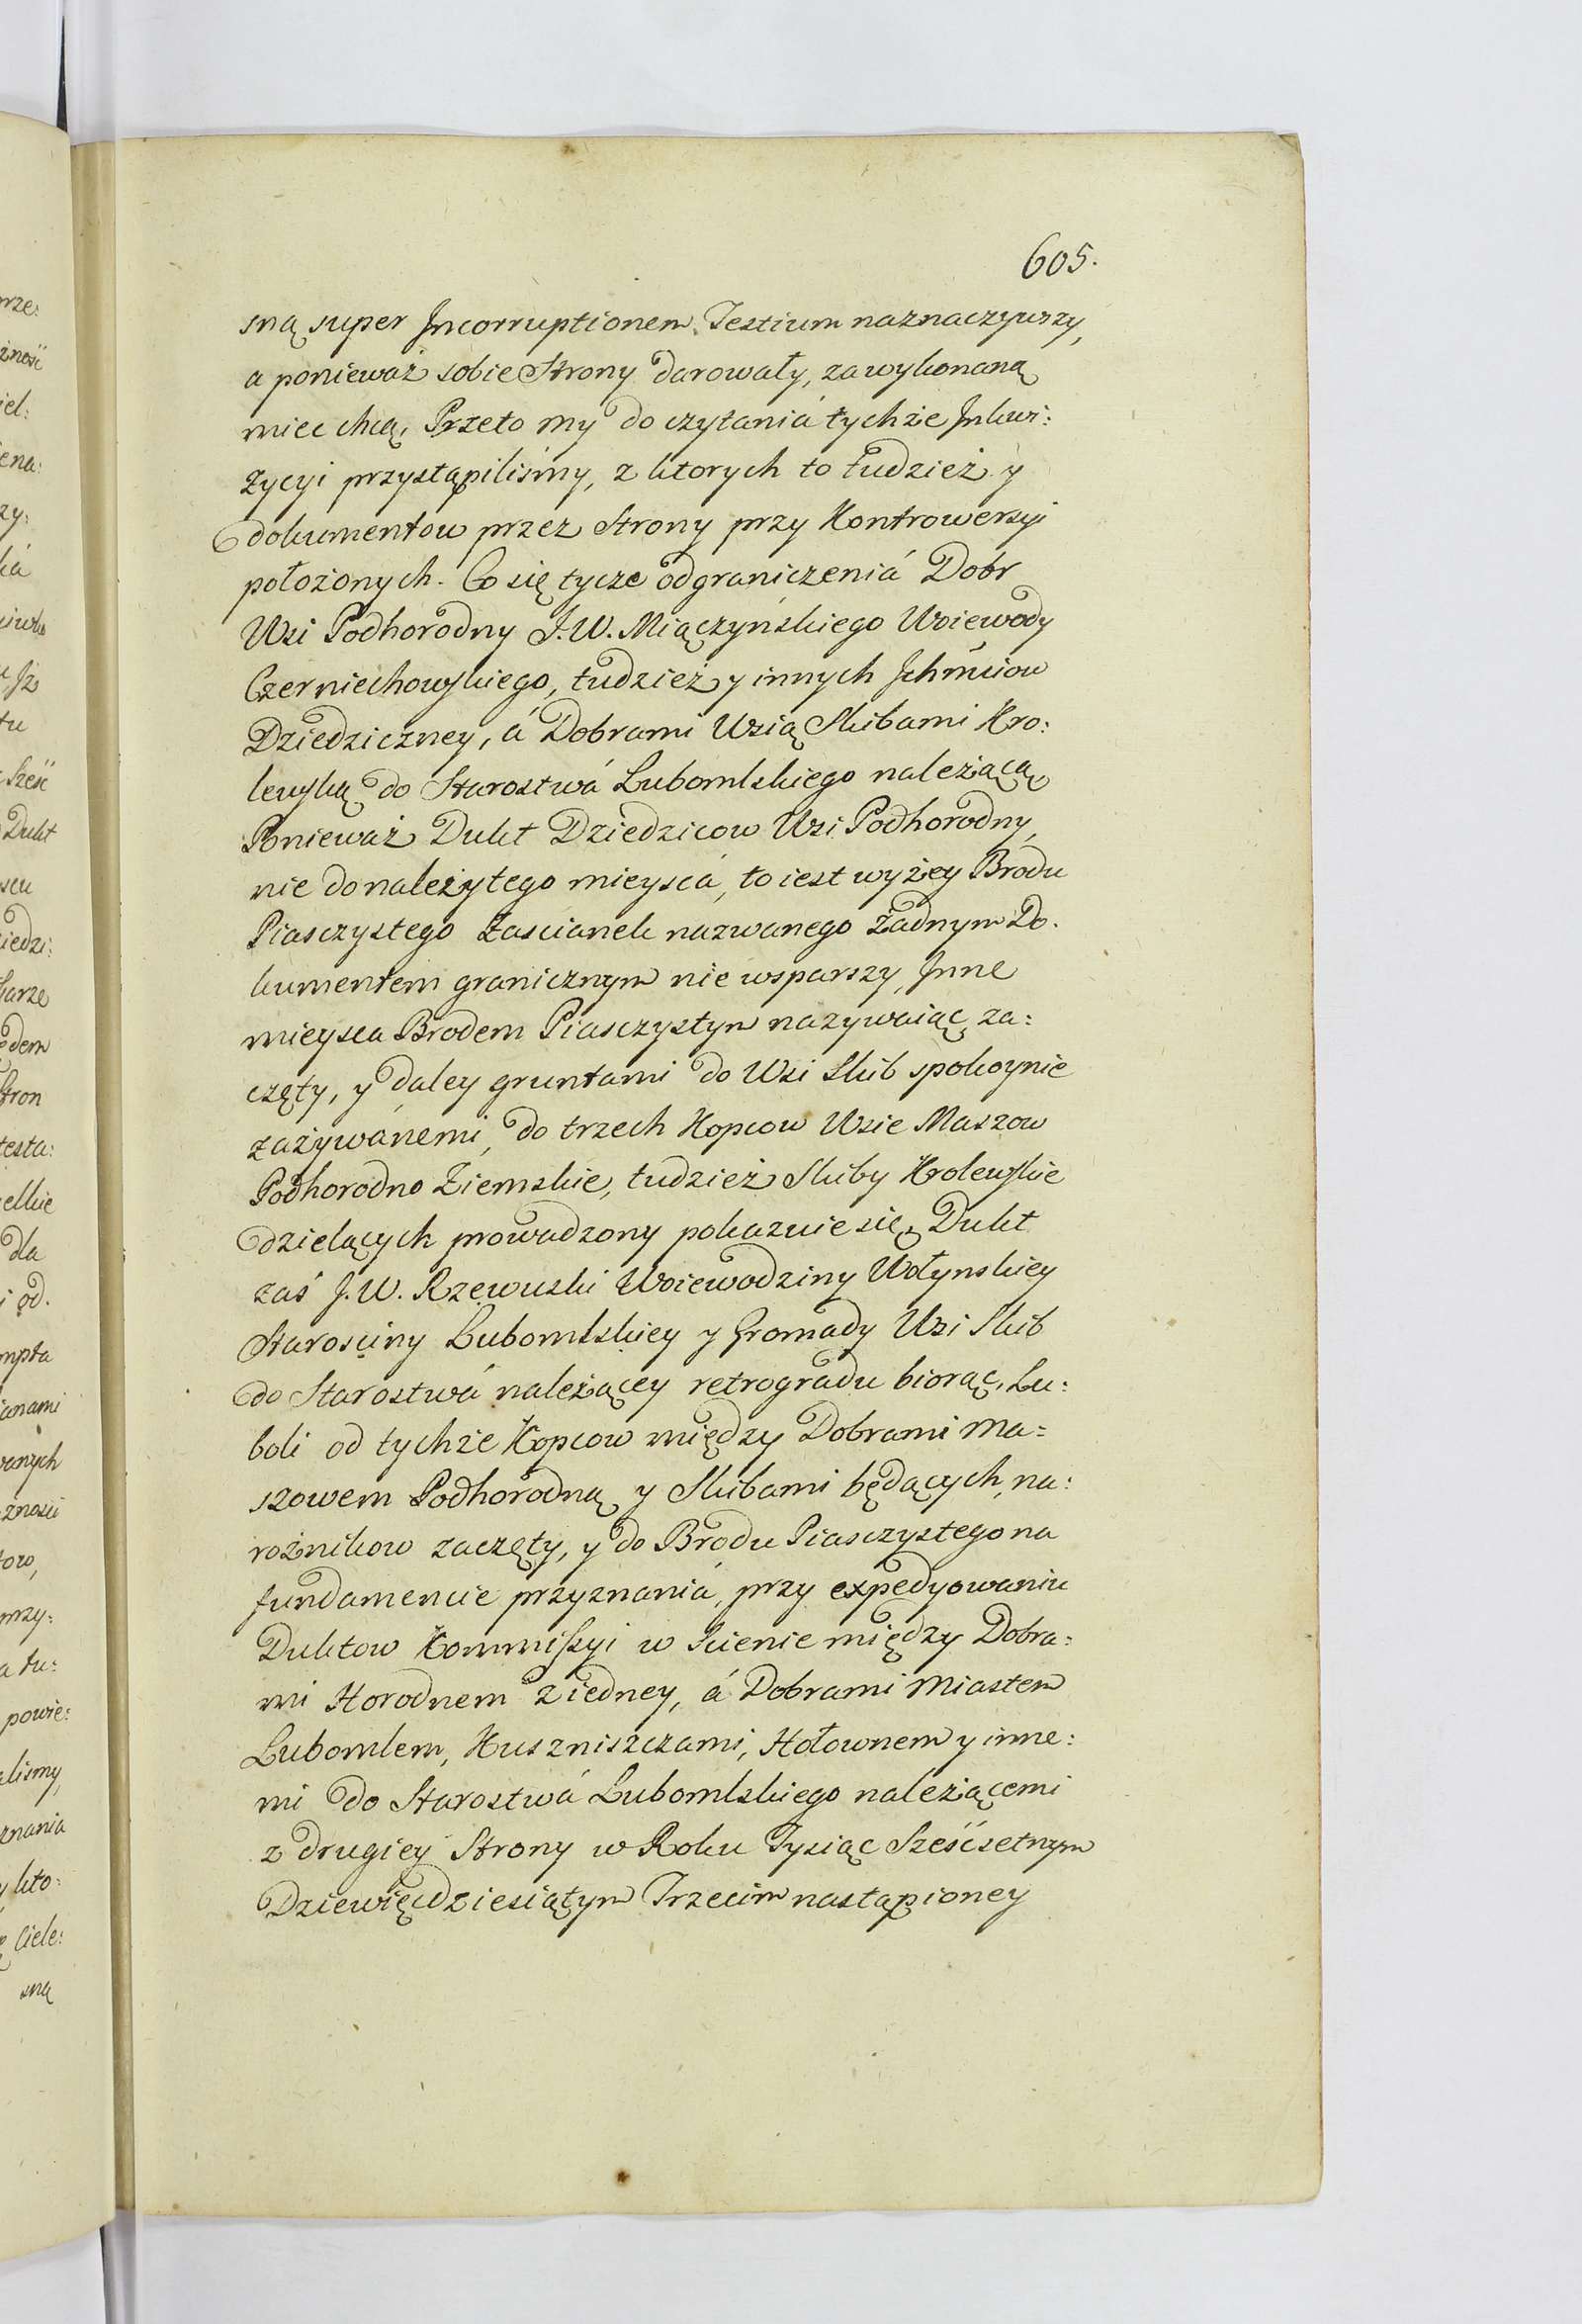 605.
sną super Incorruptionem Testium naznaczywszy,
a ponieważ sobie Strony darowały, za wykonaną
miec chcą, Przeto my do czytaniá tychże Inkwi:
zycyi przystąpiliśmy, z ktorych to tudzież y
dokumentow przez Strony przy Kontrowersyi
położonych. Co się tycze odgraniczeniá Dobr
Wsi Podhorodny J.W. Miączyńskiego Woiewody
Czerniechowskiego, tudzież y innych Jchmciow
Dziedziczney, á Dobrami Wsią Skibami Kro:
lewską do Starostwá Lubomlskiego należącą,
Ponieważ Dukt Dziedzicow Wsi Podhorodny,
nie do należytego mieyscá, to iest wyżey Brodu
Piasczystego Zascianek nazwanego żadnym Do.
kumentem granicznym nie wsparszy, Inne
mieysca Brodem Piasczystym nazywaiąc, za:
częty, y daley gruntami do Wsi Skib spokoynie
zażywánemi, do trzech Kopcow Wsie Maszow
Podhorodno Ziemskie, tudzież Skiby Krolewskie
dzielących prowadzony pokazuie się, Dukt
zaś J.W. Rzewuski Woiewodziny Wołynskiey
Starosciny Lubomlskiey y Gromady Wsi Skib
do Starostwá należącey retrogradu biorąc, Lu:
boli od tychże Kopcow między Dobrami Ma:
szowem Podhorodną y Skibami będących, na:
rożnikow zaczęty, y do Brodu Piasczystego na
fundamencie przyznaniá, przy expedyowaniu
Duktow Kommissyi w Scienie między Dobra:
mi Horodnem z iedney, á Dobrami Miastem
Lubomlem, Huszniszczami, Hołownem y inne:
mi do Starostwá Lubomlskiego należącemi
z drugiey Strony w Roku Tysiąc Sześćsetnym
Dziewięcdziesiątym Trzecim nastąpioney